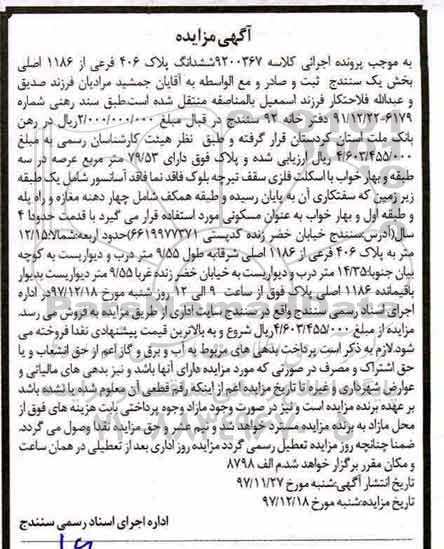 آگهی مزایده
به موجب پرونده اجرائی کلاسه ۹۲۰۰۳۶۷ششدانگ پلاک ۴۰۶ فرعی از ۱۱۸۶ اصلی
بخش یک سنندج ثبت و صادر و مع الواسطه به آقایان جمشید مرادیان فرزند صدیق
و عبدالله فلاحتکار فرزند اسمعیل بالمناصفه منتقل شده است.طبق سند رهنی شماره
۶۱۷۹-۹۱/۱۲/۲۲ دفتر خانه ۹۲ سنندج در قبال مبلغ ۲/۰۰۰/۰۰۰/۰۰۰ریال در رهن
بانک ملت استان کردستان قرار گرفته و طبق نظر هیئت کارشناسان رسمی به مبلغ
۴/۶۰۳/۴۵۵/۰۰۰ ریال ارزیابی شده و پلاک فوق دارای ۷۹/۵۳ متر مربع عرصه در سه
طبقه و بهار خواب با اسکلت فلزی سقف تیرچه بلوک فاقد نما فاقد آسانسور شامل یک طبقه
زیر زمین که سفتکاری آن به پایان رسیده و طبقه همکف شامل چهار دهنه مغازه و راه پله
و طبقه اول و بهار خواب به عنوان مسکونی مورد استفاده قرار می گیرد با قدمت حدودا ۴
سال(آدرس:سنندج خیابان خضر زنده کدپستی ۶۶۱۹۹۷۷۳۷۱)حدود اربعه:شمالا:۱۲/۱۵
متر به پلاک ۴۰۶ فرعی از ۱۱۸۶ اصلی شرقابه طول ۹/۵۵ متر درب و دیواریست به کوچه
بیان جنوبا:۱۴/۳۵ متر درب و دیواریست به خیابان خضر زنده غربا ۹/۵۵ متر دیواریست بدیوار
باقیمانده ۱۱۸۶ اصلی پلاک فوق از ساعت ۹ الی ۱۲ روز شنبه مورخ ۹۷/۱۲/۱۸در اداره
اجرای اسناد رسمی سنندج واقع در سنندج سایت اداری از طریق مزایده به فروش می رسد.
مزایده از مبلغ ۴/۶۰۳/۴۵۵/۰۰۰ریال شروع و به بالاترین قیمت پیشنهادی نقدا فروخته می
شود.لازم به ذکر است پرداخت بدهی های مربوط به آب و برق و گاز اعم از حق انشعاب و یا
حق اشتراک و مصرف در صورتی که مورد مزایده دارای آنها باشد و نیز بدهی های مالیاتی و
عوارض شهرداری و غیره تا تاریخ مزایده اعم از اینکه رقم قطعی آن معلوم شده یا نشده باشد
بر عهده برنده مزایده است و نیز در صورت وجود مازاد وجوه پرداختی بابت هزینه های فوق از
محل مازاد به برنده مزایده مسترد خواهد شد و نیم عشر و حق مزایده نقدا وصول می گردد.
ضمنا چنانچه روز مزایده تعطیل رسمی گردد مزایده روز اداری بعد از تعطیلی در همان ساعت
و مکان مقرر برگزار خواهد شد.م الف ۸۷۹۸
تاریخ انتشار آگهی:شنبه مورخ ۹۷/۱۱/۲۷
تاریخ مزایده:شنبه مورخ ۹۷/۱۲/۱۸
اداره اجرای اسناد رسمی سنندج